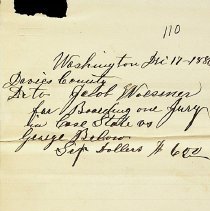 110
Washington Dec 17 188
Davies County
Dr to Jacob Woesner
for Boarding one Jury
in Case State vs
George Below
Six Dollars $ 6.00